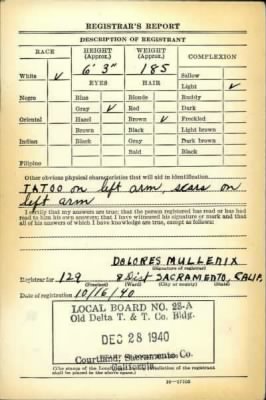 REGISTRAR'S REPORT
DESCRIPTION OF REGISTRANT
RACE HEIGHT (Approx.) WEIGHT (Approx.) COMPLEXION
6' 3" 185 Sallow
White ✓ EYES HAIR Light ✓
Negro Blue Blonde Ruddy
Gray ✓ Red Dark
Oriental Hazel Brown ✓ Freckled
Brown Black Light brown
Indian Black Gray Dark brown
Bald Black
Filipino
Other obvious physical characteristics that will aid in identification
TATOO on left arm, scars on
left arm
I certify that my answers are true; that the person registered has read or has had
read to him his own answers; that I have witnessed his signature or mark and that
all of his answers of which I have knowledge are true, except as follows:
DOLORES MULLENIX
(Signature of registrar)
Registrar for 129 8 Dist SACRAMENTO, CALIF.
(Precinct) (Ward) (City or county) (State)
Date of registration 10/16/40
LOCAL BOARD NO. 28-A
Old Delta T. & T. Co. Bldg.
DEC 28 1940
Courtland, Sacramento Co.
California
(The stamp of the Local Board having jurisdiction of the registrant
shall be placed in the above space.)